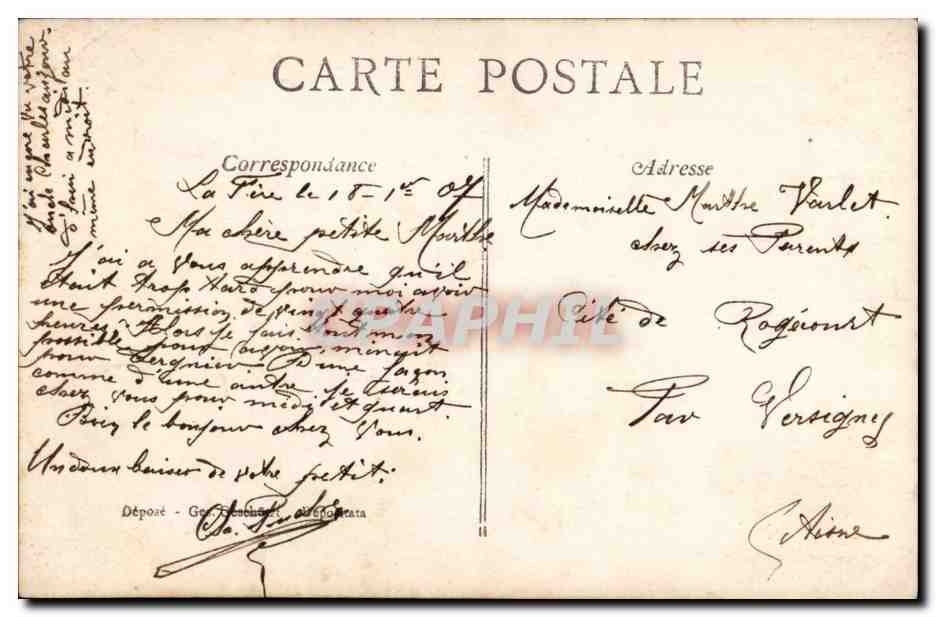 J'ai encore vu votre
oncle Charles aujour
d'hui a midi au
même endroit.
CARTE POSTALE
Correspondance
La Fère le 18-1er 07
Ma chère petite Marthe
J'ai a vous apprendre qu'il
était trop tard pour moi avoir
une permission de vingt quatre
heures. Alors je fais tout mon
possible pour avoir minuit
pour Tergnier D'une façon
comme d'une autre je serais
chez vous pour midi et quart
Bien le bonjour chez Vous.
Un doux baiser de votre petit.
Déposé - Ges. Geschützt - Depositata
Adresse
Mademoiselle Marthe Varlet.
chez ses Parents
Cité de Rogécourt
Par Versigny
Aisne
CPAPHIL